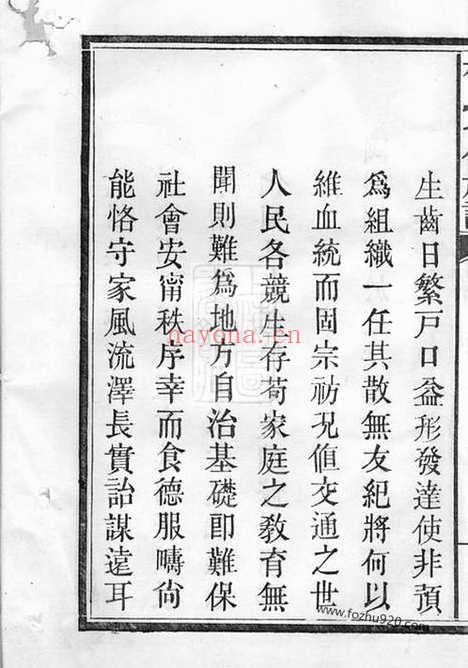 生齒日繁戸口益形發達使非預
爲組織一任其散無友紀將何以
維血統而固宗祊况值交通之世
人民各競生存苟家庭之教育無
聞則難爲地方自治基礎即難保
社會安甯秩序幸而食德服疇尚
能恪守家風流澤長實詒謀遠耳
nayona.cn
www.fozhu920.com